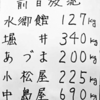 前日放流
水郷館 127kg
堀井 340kg
あづま 200kg
小松屋 225kg
中島屋 690kg